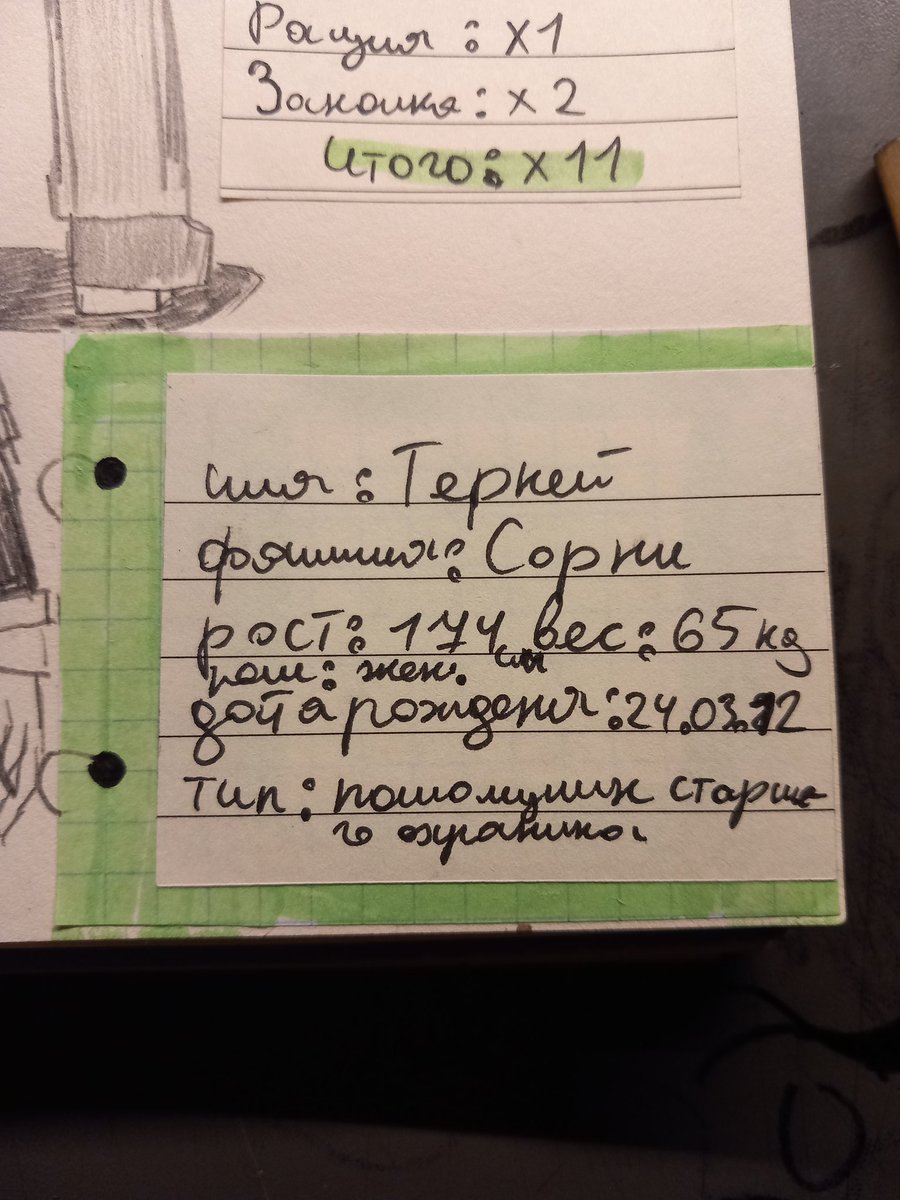 Рация : х1
Заколка : х 2
Итого : х 11
имя : Теркей
фамилия : Сорни
рост : 174 см вес : 65 kg
пол : жен.
дата рождения : 24.03.12
тип : помомщник старше
го охраника